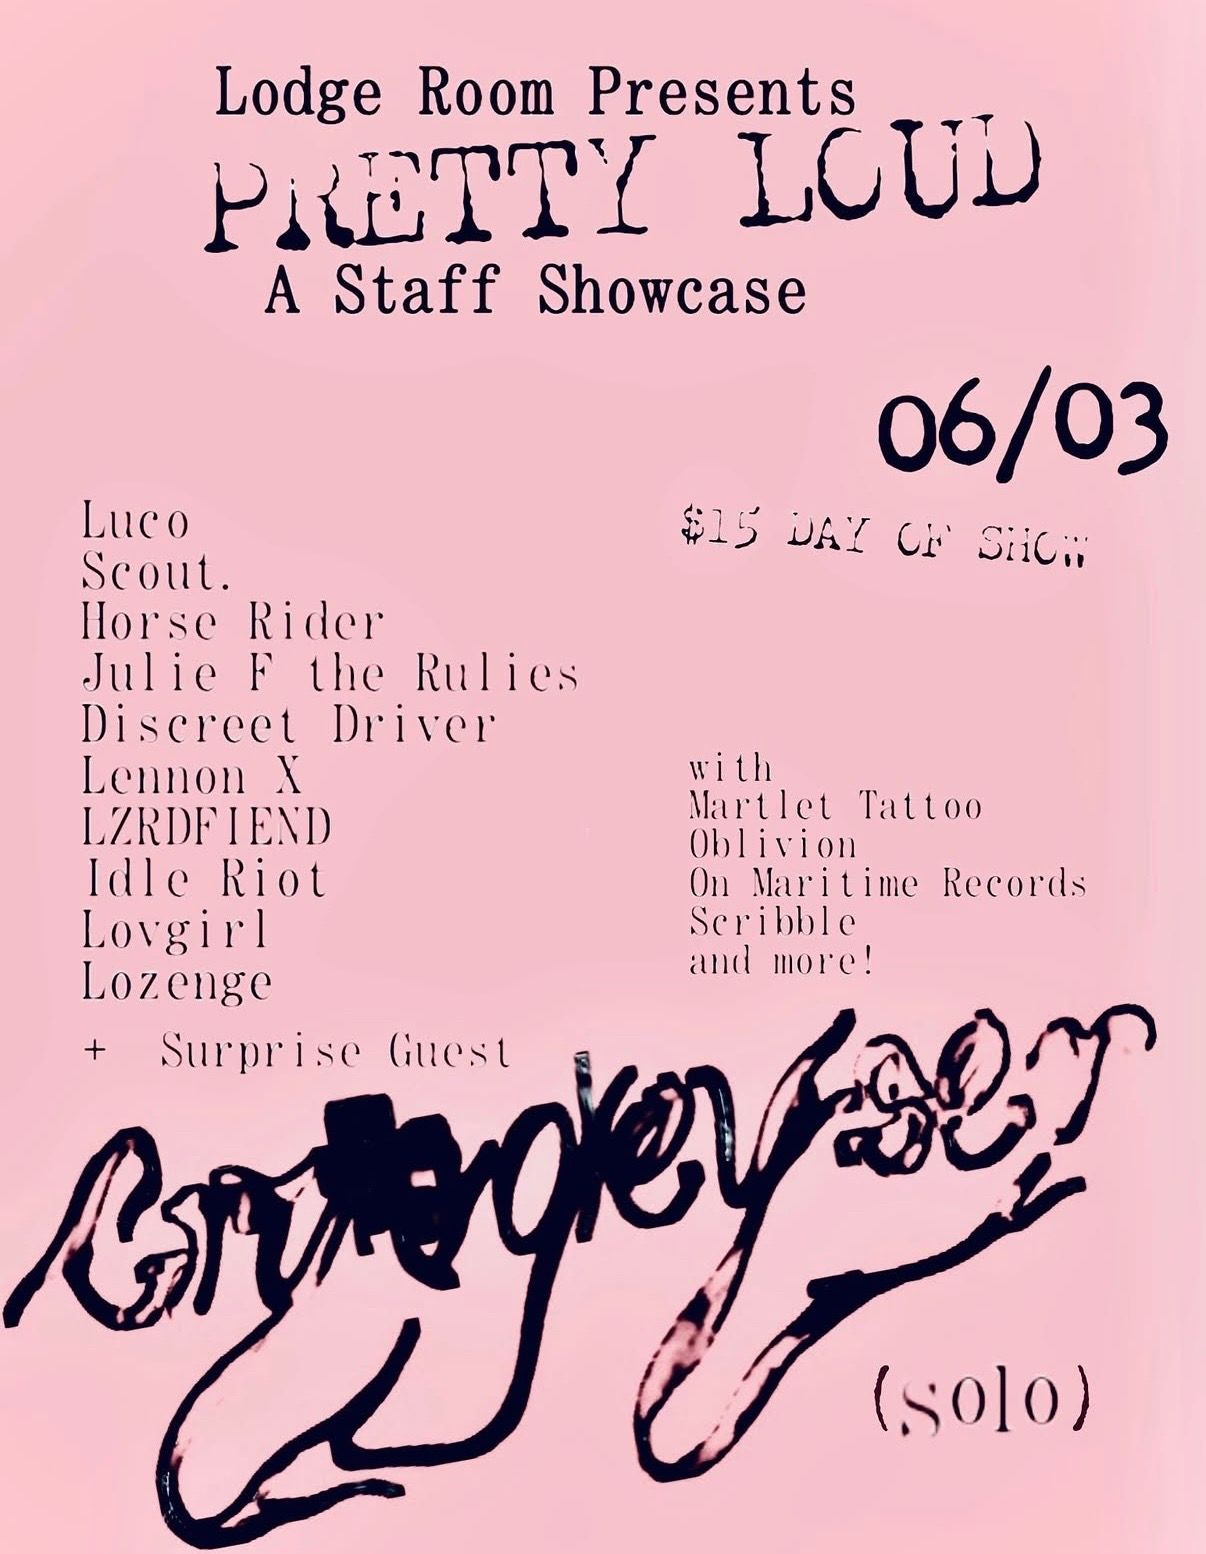 Lodge Room Presents
PRETTY LOUD
A Staff Showcase
06/03
$15 DAY OF SHOW
Luco
Scout.
Horse Rider
Julie F the Rulies
Discreet Driver
Lennon X
LZRDFIEND
Idle Riot
Lovgirl
Lozenge
+ Surprise Guest
with
Martlet Tattoo
Oblivion
On Maritime Records
Scribble
and more!
(solo)